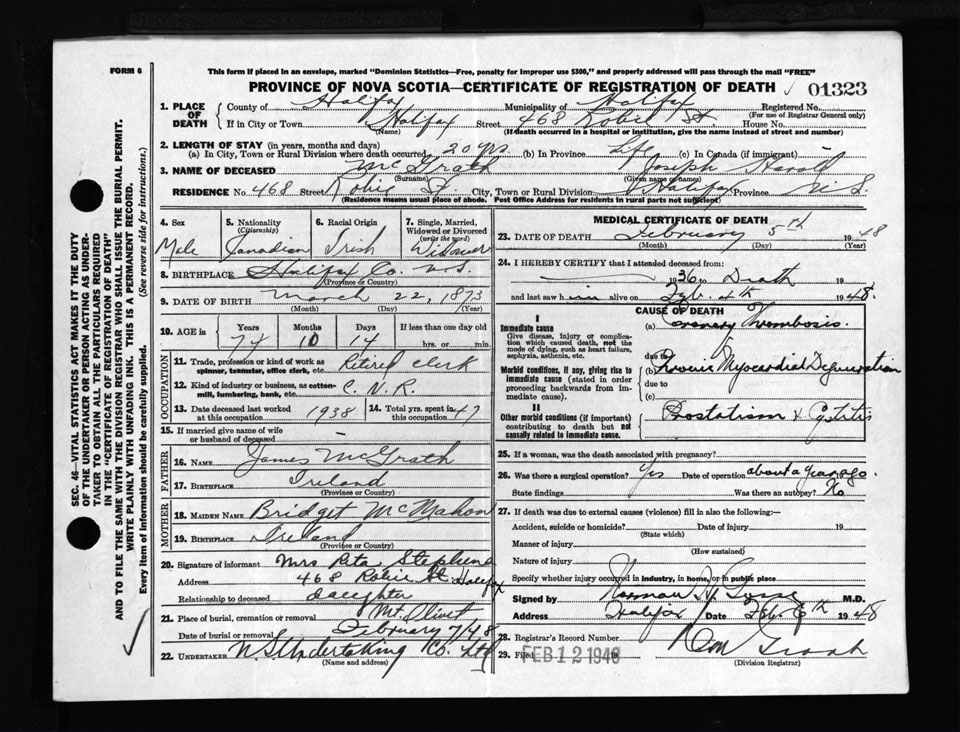 FORM 6
This form if placed in an envelope, marked "Dominion Statistics—Free, penalty for improper use $300," and properly addressed will pass through the mail "FREE"
PROVINCE OF NOVA SCOTIA—CERTIFICATE OF REGISTRATION OF DEATH 01323
1. PLACE OF DEATH County of Halifax Municipality of Halifax Registered No.
(For use of Registrar General only)
If in City or Town Halifax Street 468 Robie St. House No.
(Name) (If death occurred in a hospital or institution, give the name instead of street and number)
2. LENGTH OF STAY (in years, months and days)
(a) In City, Town or Rural Division where death occurred 20 yrs. (b) In Province Life (c) In Canada (if immigrant)
3. NAME OF DECEASED McGrath Joseph Harold
(Surname) (Given name or names)
RESIDENCE No. 468 Street Robie St. City, Town or Rural Division Halifax Province N.S.
(Residence means usual place of abode. Post Office Address for residents in rural parts not sufficient)
4. Sex Male
5. Nationality (Citizenship) Canadian
6. Racial Origin Irish
7. Single, Married, Widowed or Divorced (write the word) Widower
8. BIRTHPLACE Halifax Co. N.S.
(Province or Country)
9. DATE OF BIRTH March 22, 1873
(Month) (Day) (Year)
10. AGE in Years Months Days If less than one day old
74 10 14 hrs. or min.
OCCUPATION
11. Trade, profession or kind of work as spinner, teamster, office clerk, etc. Retired clerk
12. Kind of industry or business, as cotton-mill, lumbering, bank, etc. C.N.R.
13. Date deceased last worked at this occupation 1938 14. Total yrs. spent in this occupation 47
15. If married give name of wife or husband of deceased —
FATHER
16. NAME James McGrath
17. BIRTHPLACE Ireland
(Province or Country)
MOTHER
18. MAIDEN NAME Bridget McMahon
19. BIRTHPLACE Ireland
(Province or Country)
20. Signature of informant Mrs Rita Stephens
Address 468 Robie St. Halifax
Relationship to deceased daughter
21. Place of burial, cremation or removal Mt. Olivet
Date of burial or removal February 7/48
22. UNDERTAKER N.S. Undertaking Co. Ltd
(Name and address)
MEDICAL CERTIFICATE OF DEATH
23. DATE OF DEATH February 5th 1948
(Month) (Day) (Year)
24. I HEREBY CERTIFY that I attended deceased from:
1936 to Death 19
and last saw him alive on Feb. 4th 1948.
CAUSE OF DEATH
I
Immediate cause
Give disease, injury or complication which caused death, not the mode of dying, such as heart failure, asphyxia, asthenia, etc.
(a) Coronary Thrombosis.
due to
Morbid conditions, if any, giving rise to immediate cause (stated in order proceeding backwards from immediate cause).
(b) Chronic Myocardial Degeneration
due to
(c)
II
Other morbid conditions (if important) contributing to death but not causally related to immediate cause.
Prostatism & Cystitis
25. If a woman, was the death associated with pregnancy?
26. Was there a surgical operation? Yes Date of operation about a year ago.
State findings Was there an autopsy? No
27. If death was due to external causes (violence) fill in also the following:—
Accident, suicide or homicide? Date of injury 19
(State which)
Manner of injury
(How sustained)
Nature of injury
Specify whether injury occurred in industry, in home, or in public place
Signed by Norman H. Gosse M.D.
Address Halifax Date Feb. 6th 1948
28. Registrar's Record Number
29. Filed FEB 12 1948 19
(Division Registrar)
SEC. 46—VITAL STATISTICS ACT MAKES IT THE DUTY OF THE UNDERTAKER OR PERSON ACTING AS UNDERTAKER TO OBTAIN ALL THE PARTICULARS REQUIRED IN THE "CERTIFICATE OF REGISTRATION OF DEATH" AND TO FILE THE SAME WITH THE DIVISION REGISTRAR WHO SHALL ISSUE THE BURIAL PERMIT.
WRITE PLAINLY WITH UNFADING INK. THIS IS A PERMANENT RECORD.
Every item of information should be carefully supplied. (See reverse side for instructions.)